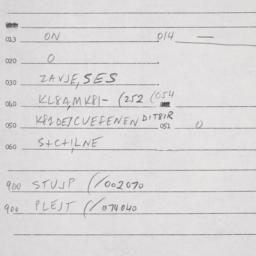 013 ON 014 —
020 O
030 ZAVJE, SES
040 KL8A, MK81- (252 (054
050 K81DE7CVEFENEN DITBIR 051 0
060 S+C+1LNE
900 STUJP (/002070
900 PLEJT (/074040